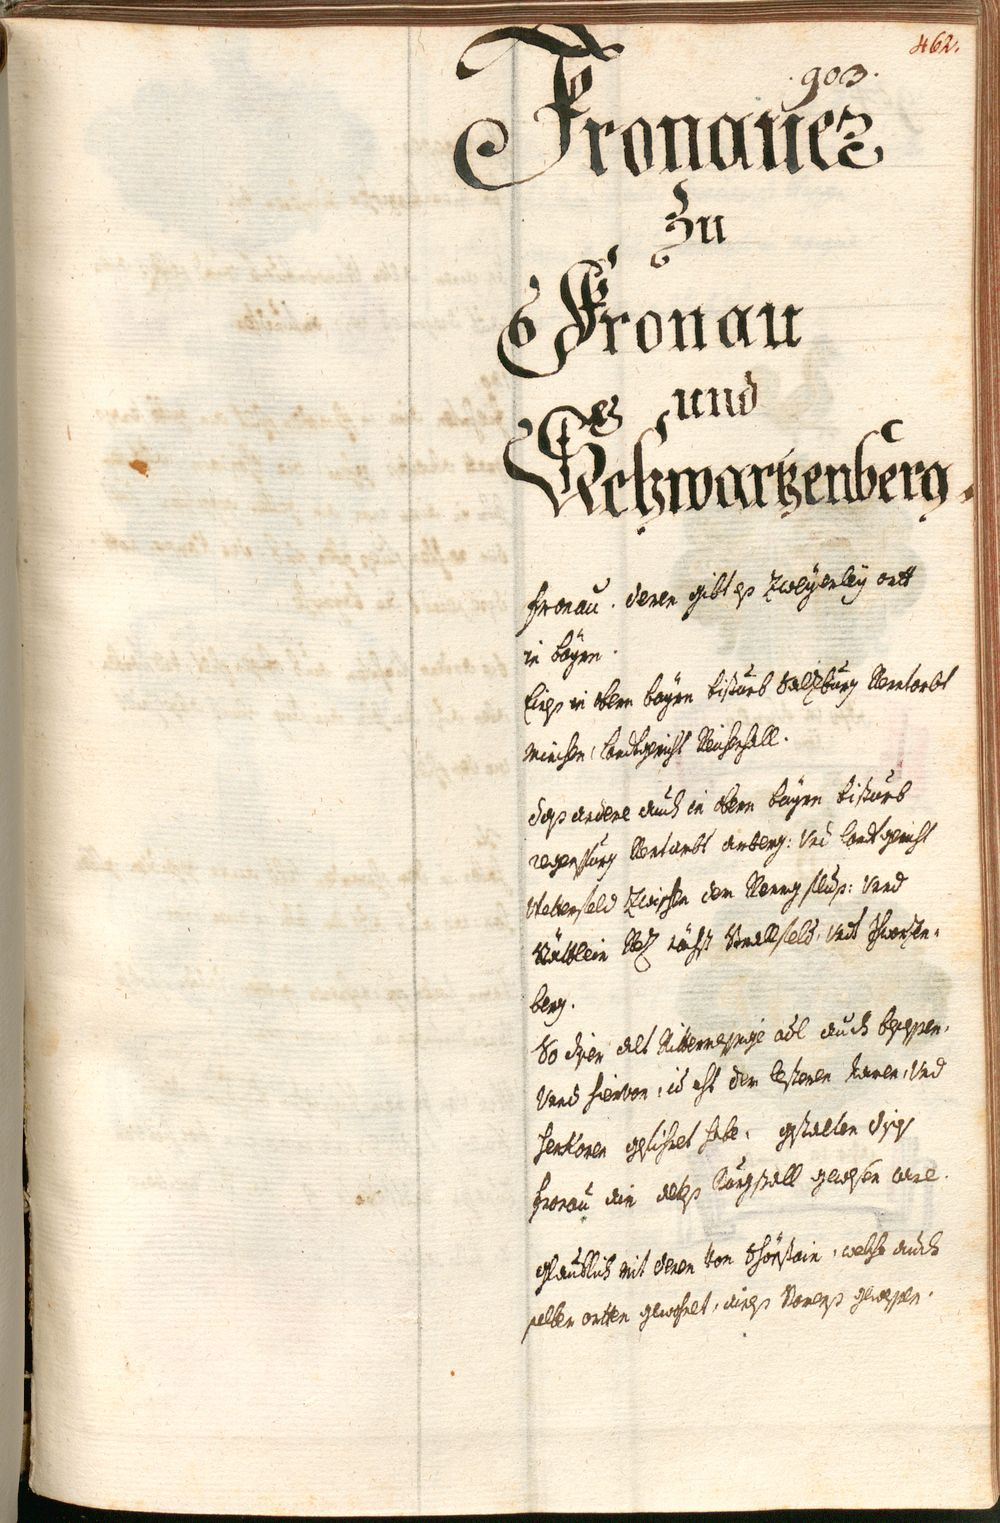 462.
903.
Fronauer
Zu
Fronau
und
Schwartzenberg.
Fronau. deren gibt es Zweyerley ortt
in bayrn.
Eines in obern bayrn bistumb Saltzburg Rentambt
München, landtgericht Reichenhall.
das andere auch in obern bayrn bistumb
regenspurg Rentambt amberg: Und landtgericht
Wetterfeld Zwischen dem Regenfluß: Unnd
Stättlein zu nächst Unnd Schwartzen-
berg.
So dessen alt Rittermessige adl auch besessen,
Unnd hiervon, den lesteren Namen, Und
herkomen geführt habe, gestalten diss
Fronau ein altes Burgstall gewesen ware.
glaublich mit denen von Hofstain, welche auch
selber orthen gewohnet, aines Stamens gewesen.